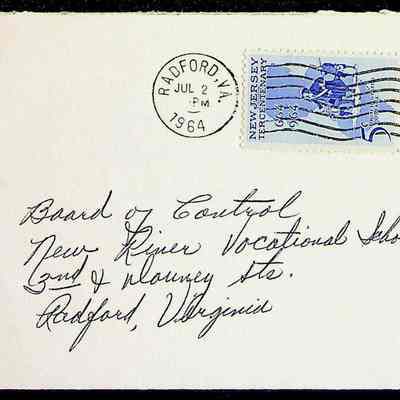 RADFORD, VA.
JUL 2
PM
1964
NEW JERSEY
TERCENTENARY
1664 1964
5
Board of Control
New River Vocational Scho
2nd & Downey Sts.
Radford, Virginia